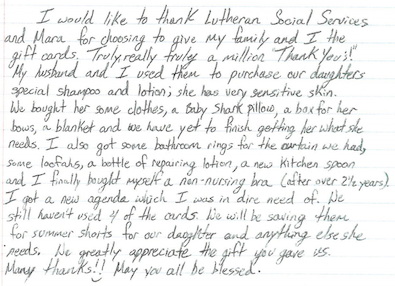 I would like to thank Lutheran Social Services
and Mara for choosing to give my family and I the
gift cards. Truly, really truly a million "Thank You's!"
My husband and I used them to purchase our daughters
special shampoo and lotion; she has very sensitive skin.
We bought her some clothes, a Baby Shark pillow, a box for her
bows, a blanket and we have yet to finish getting her what she
needs. I also got some bathroom rings for the curtain we had,
some loofahs, a bottle of repairing lotion, a new kitchen spoon
and I finally bought myself a non-nursing bra (after over 2½ years).
I got a new agenda which I was in dire need of. We
still haven't used 4 of the cards. We will be saving them
for summer shorts for our daughter and anything else she
needs. We greatly appreciate the gift you gave us.
Many thanks!! May you all be blessed.